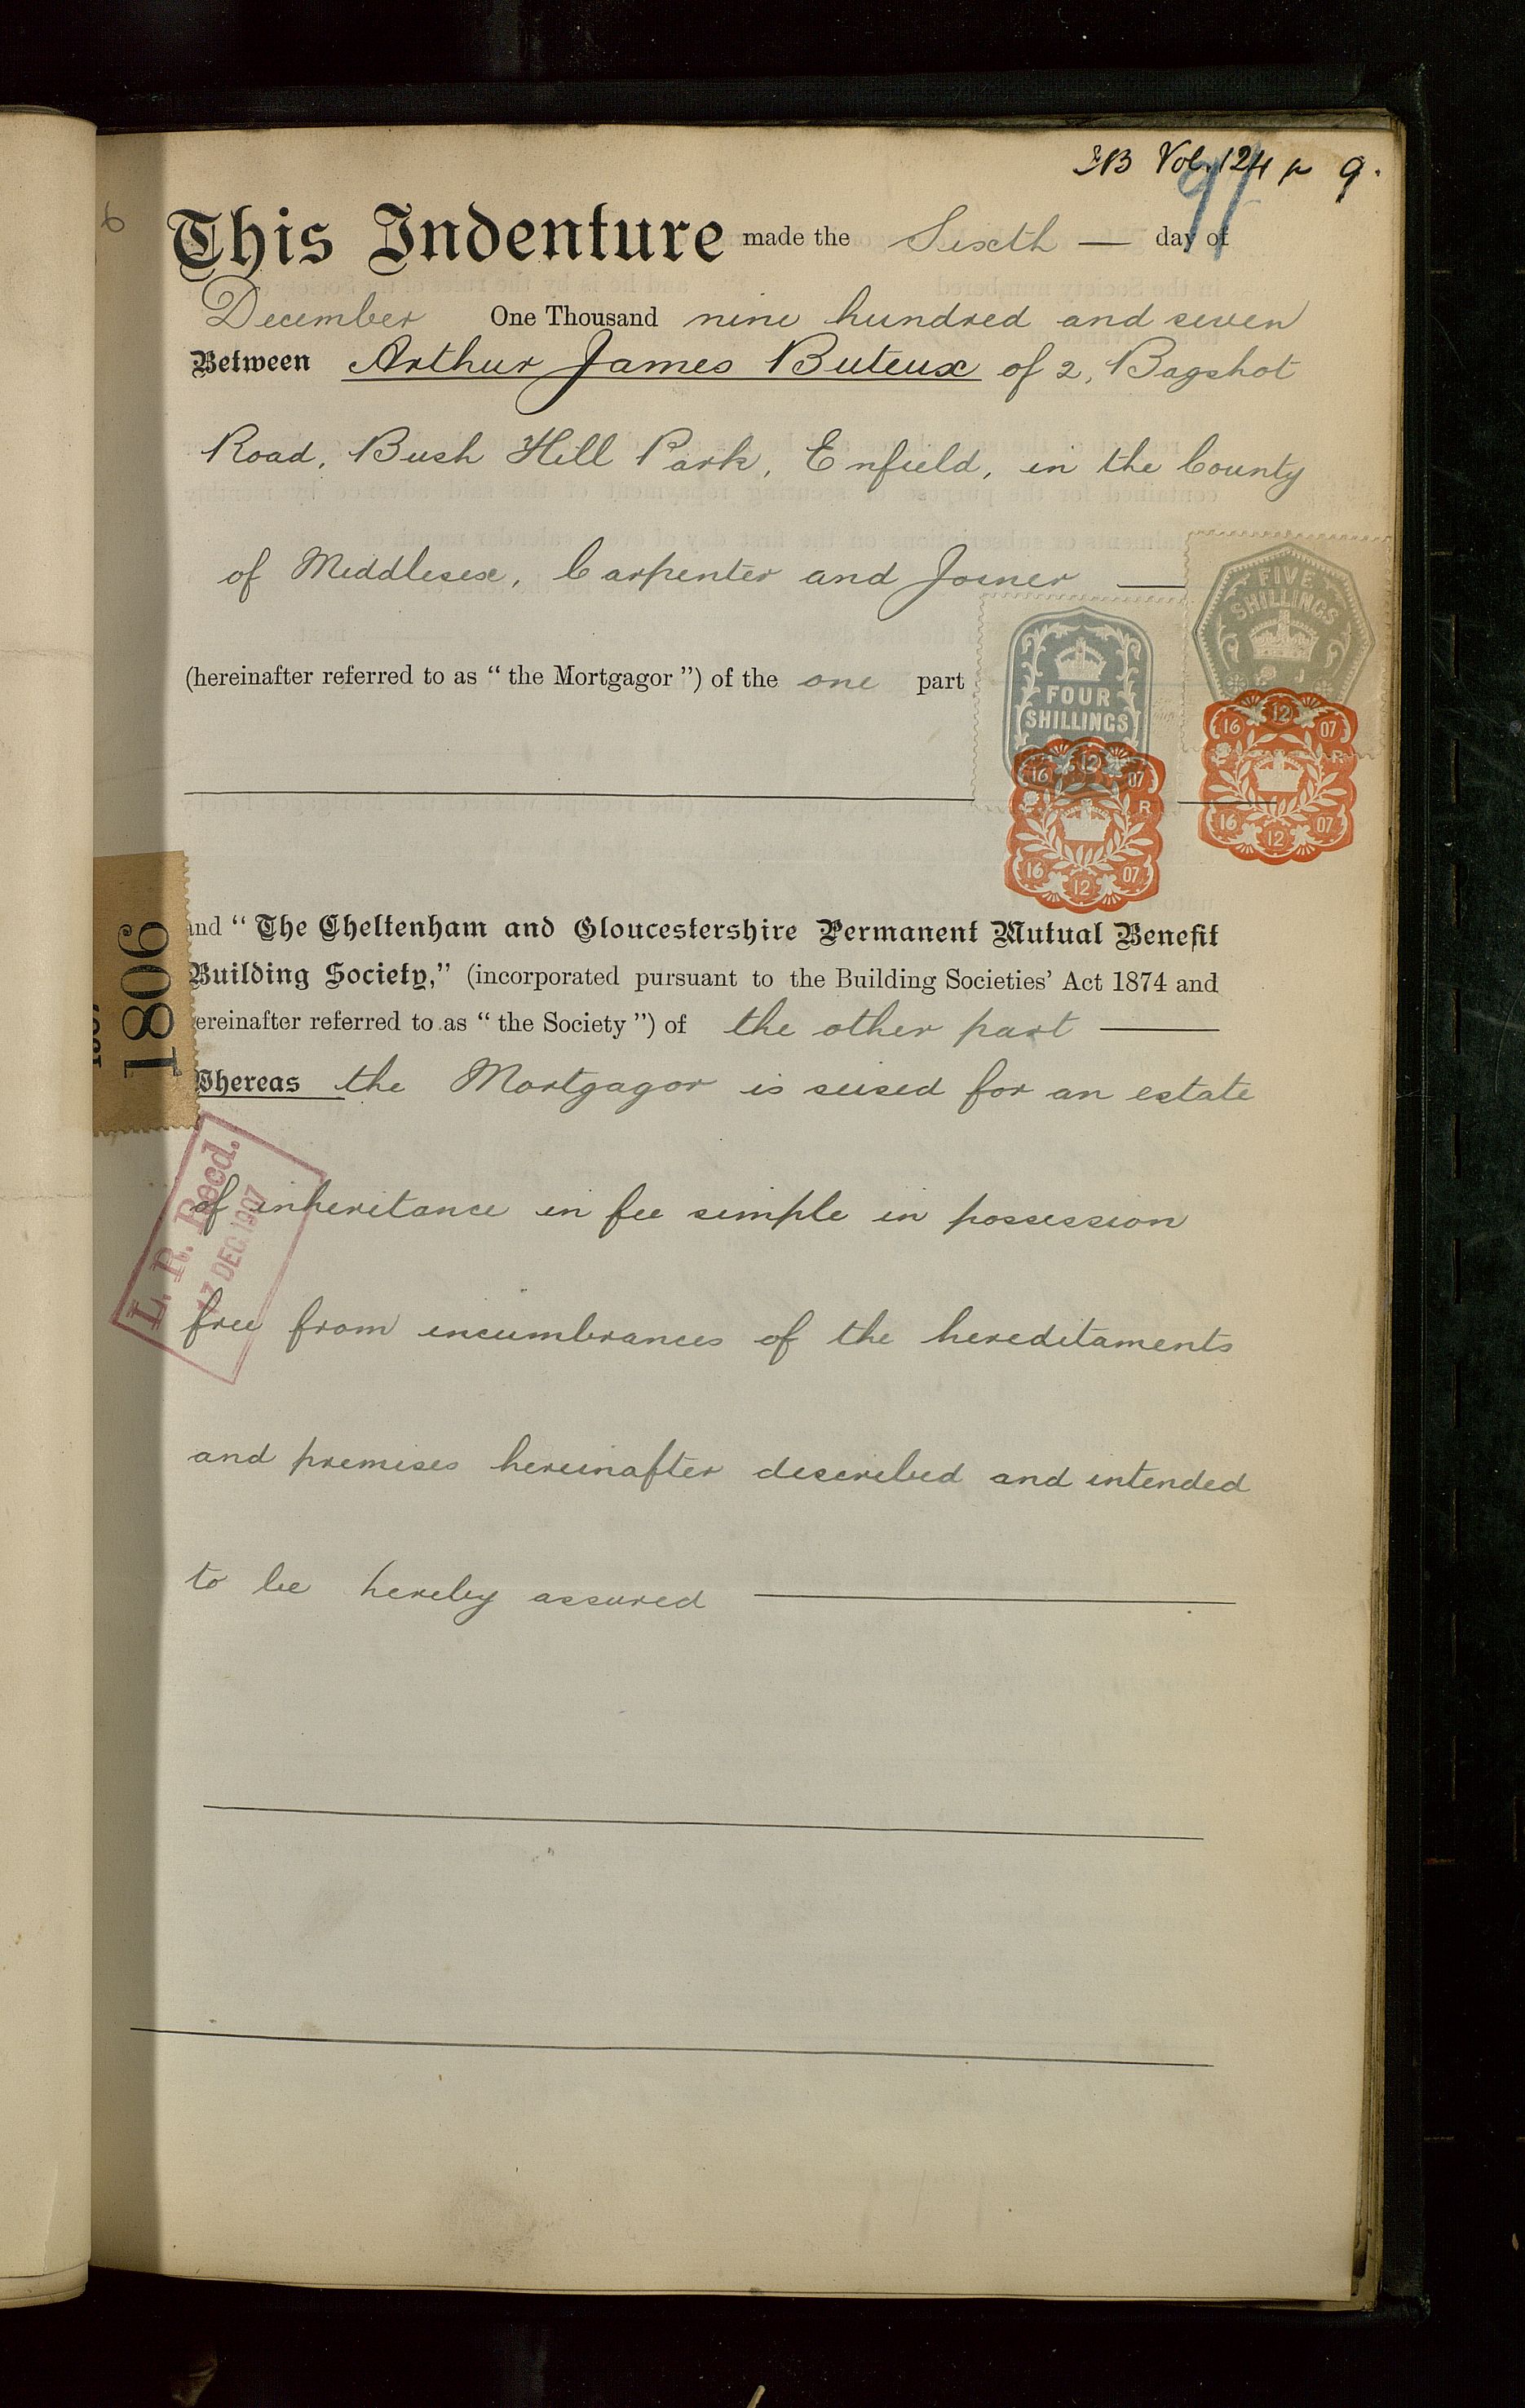 Vol. 124 p 9.
91
6
This Indenture made the Sixth — day of
December One Thousand nine hundred and seven
Between Arthur James Buteux of 2, Bagshot
Road, Bush Hill Park, Enfield, in the County
of Middlesex, Carpenter and Joiner —
FIVE
SHILLINGS
J
FOUR
SHILLINGS
(hereinafter referred to as “ the Mortgagor ”) of the one part
16 12 07
R
16 12 07
16 12 07
R
16 12 07
and “ The Cheltenham and Gloucestershire Permanent Mutual Benefit
Building Society,” (incorporated pursuant to the Building Societies’ Act 1874 and
ereinafter referred to as “ the Society ”) of the other part —
1806
Whereas the Mortgagor is seised for an estate
L. R. Recd.
17 DEC 1907
of inheritance in fee simple in possession
free from incumbrances of the hereditaments
and premises hereinafter described and intended
to be hereby assured —